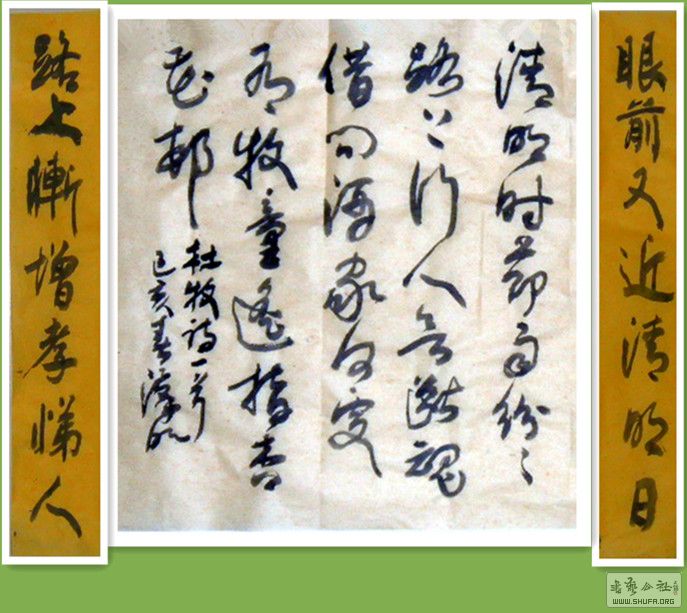 眼前又近清明日
清明时节雨纷〻
路上行人欲断魂
借问酒家何处
有牧童遥指杏
花邨
杜牧诗一首
己亥春
路上暫增孝悌人
书艺公社
WWW.SHUFA.ORG